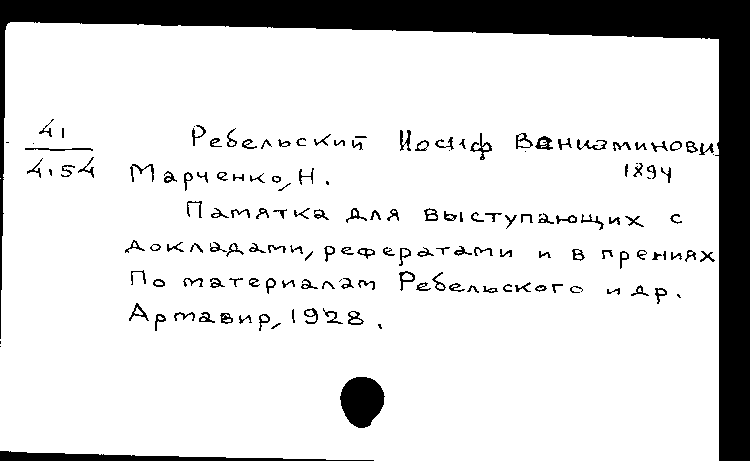 41
4.54
Ребельский Иосиф Вениаминови
1894
Марченко, Н.
Памятка для выступающих с
докладами, рефератами и в прениях
По материалам Ребельского и др.
Армавир, 1928.